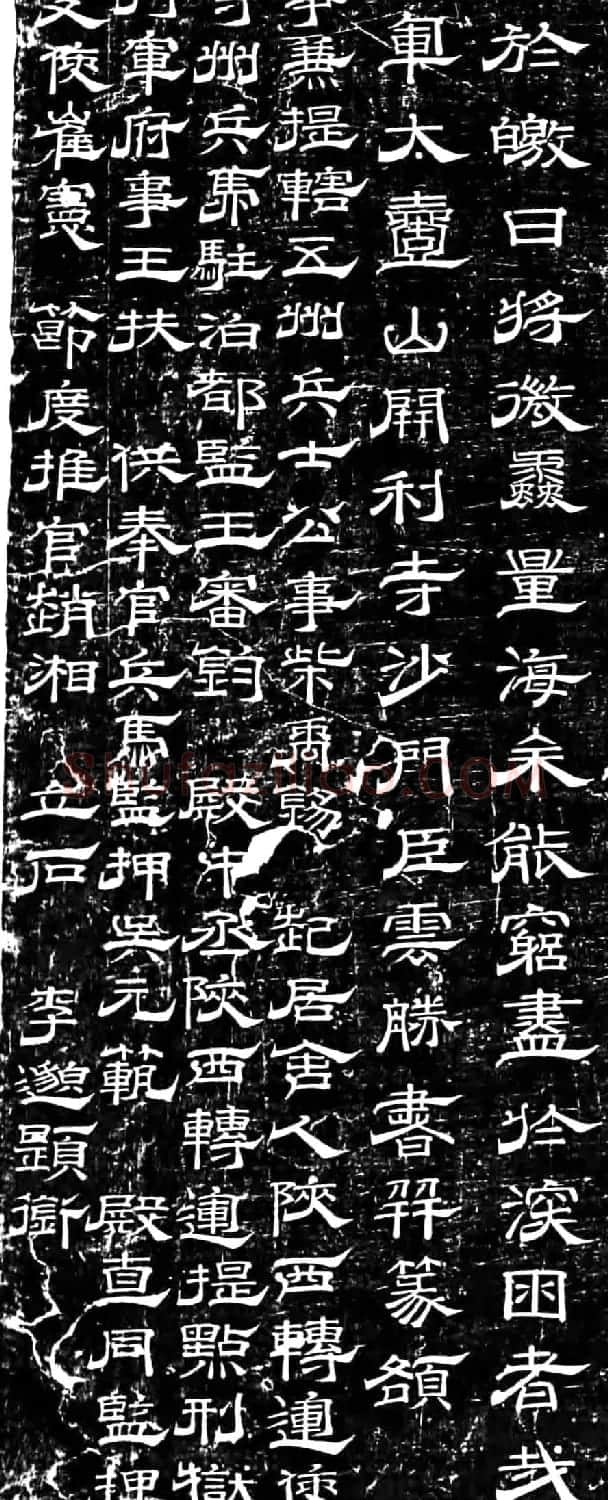 於皦日將微蠡量海未能窮盡於深囦者哉
軍太壹山開利寺沙門臣雲勝書并篆額
事兼提轄五州兵士公事柴禹錫 起居舍人陝西轉運使
州兵馬駐泊都監王審鈞 殿中丞陝西轉運提點刑獄
軍府事王扶 供奉官兵馬監押吳元範 殿直同監押
崔憲 節度推官趙湘 立石 李邈題銜
Shufaziliao.COM